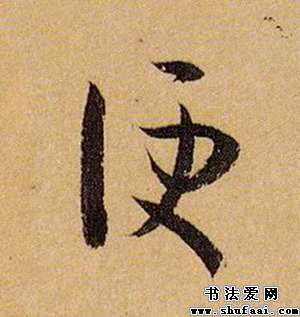 便
书法爱网
www.shufaai.com